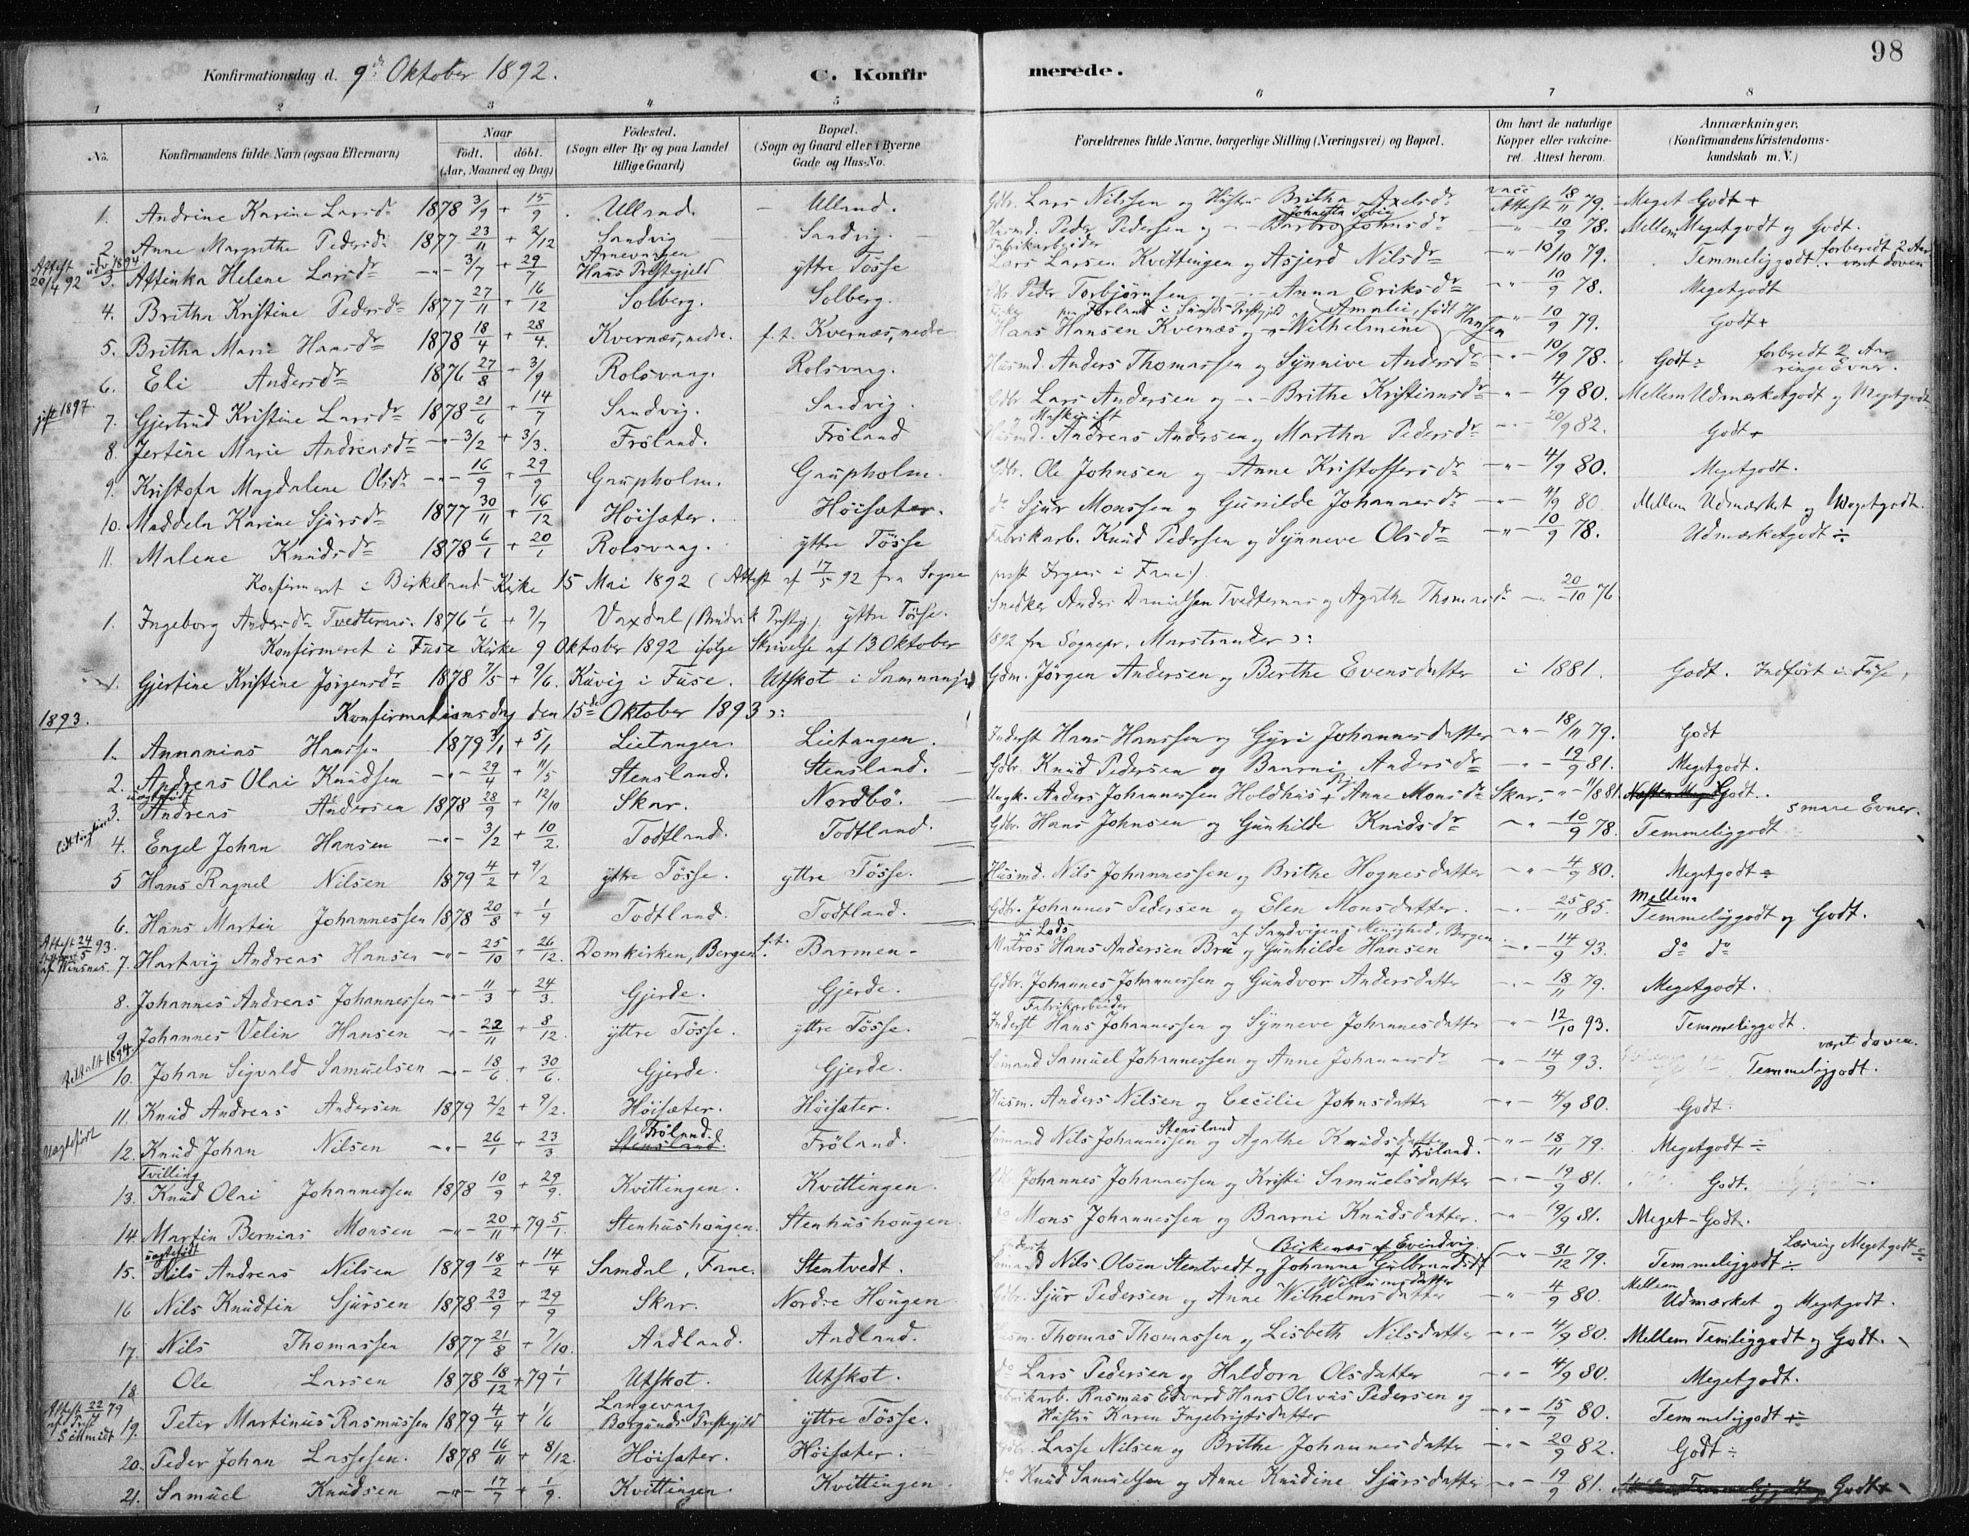 98
Konfirmationsdag d. 9de Oktober 1892. C. Konfirmerede.
1 2 3 4 5 6 7 8
No. Konfirmandens fulde Navn (ogsaa Efternavn) Naar født, døbt. (Aar, Maaned og Dag) Fødested. (Sogn eller By og paa Landet tillige Gaard) Bopæl. (Sogn og Gaard eller i Byerne Gade og Hus-No. Forældrenes fulde Navne, borgerlige Stilling (Næringsvei) og Bopæl. Om havt de naturlige Kopper eller vaccineret. Attest herom. Anmærkninger. (Konfirmandens Kristendomskundskab m. V.)
1. Andrine Karine Larsdr 1878 3/9 + 15/9 Ulland. Ulland. Gbr. Lars Nilssen og Hustru Britha Axelsdr vacc Attest 18/11 79. Meget Godt +
2. Anne Margrethe Pedersdr 1877 23/11 + 2/12 Sandvig Sandvig. Husmd. Peder Pedersen og Barbro Johnsdr 10/9 78. Mellem Megetgodt og Godt.
Attest 20/4 92 3. Attinka Helene Larsdr 3/7 + 29/7 Arnevaagen Haus Prestegjeld yttre Tösse Fabrikarbeider Lars Larsen Kvittingen og Asjerd Nilsdr 10/10 79. Temmeliggodt. forberedt 2 Aar været doven
4. Britha Kristine Pedersdr 1877 27/11 + 16/12 Solberg. Solberg. Peder Torbjørnsen Anna Eriksdr 10/9 78. Megetgodt
5. Britha Marie Hansdr 1878 18/4 + 28/4. Kvernæs, nedre. f.t. Kvernæs, nedre Hans Hansen Kvernæs og Wilhelmine Amalie, født Hansen 10/9 79. Godt +
6. Eli Andersdr 1876 27/8 + 3/9 Rolsvaag. Rolsvaag. Husmd. Anders Thomassen og Synnive Andersdr 10/9 78. Godt ÷ forberedt 2 Aar ringe Evner.
gift 1897 7. Gjertrud Kristine Larsdr 1878 21/6 + 14/7 Sandvig. Sandvig. Gbr. Lars Andersen og Brithe Kristiansdr 4/9 80. Mellem Udmærketgodt og Megetgodt
8. Jertine Marie Andreasdr 3/2 + 3/3. Fröland. Fröland Husmd. Andreas Andersen og Martha Pedersdr 20/9 82. Godt +
9. Kristofa Magdalene Olsdr 16/9 + 29/9 Gaupholm. Gaupholm. Gbr. Ole Johnsen og Anne Kristoffersdr 4/9 80. Megetgodt.
10. Maddela Karine Sjursdr 1877 30/11 + 16/12 Höisæter. Höisæter. do Sjur Monssen og Gunilde Johannesdr 4/9 80 Mellem Udmærket og Megetgodt.
11. Malene Knudsdr 1878 6/1 + 20/1 Rolsvaag. yttre Tösse Fabrikarb. Knud Pedersen og Synneve Olsdr 10/9 78. Udmærketgodt ÷
Konfirmeret i Birkeland Kirke 15 Mai 1892 (Attest af 17/5 92 fra Sogneprest Irgens i Fane).
1. Ingeborg Andersdr Tvedternæs. 1876 1/6 + 9/7 Vaxdal (Bruvik Prestg). yttre Tösse. Snedker Anders Danielsen Tvedternæs og Agathe Thomasdr 20/10 76
Konfirmeret i Fuse Kirke 9 Oktober 1892 ifølge Skrivelse af 13 Oktober 1892 fra Sognepr. Marstrander:
1. Gjertine Kristine Jørgensdr 1878 7/5 + 9/6. Kuvig i Fuse. Utskot i Samnanger Gdm. Jörgen Andersen og Berthe Evensdatter i 1881. Godt. Indført i Fuse.
1893. Konfirmationsdag den 15de Oktober 1893:
1. Annanias Hanssen 1879 3/1 + 5/1 Lietangen Lietangen. Inderst Hans Hanssen og Gyri Johannesdatter 18/11 79. Godt
2. Andreas Olai Knudsen 29/4 + 11/5 Stensland. Stensland. Gbr. Knud Pedersen og Baarni Andersdr 19/9 81. Megetgodt.
3. uægtefødt Andreas Andersen 1878 28/9 + 12/10 Skar. Nordbö. Ungk. Anders Johannessen Holdhus + Pige Anne Monsdr Skar. 11/8 81. Godt. smaae Evner.
4. Engel Johan Hansen 3/2 + 10/2. Todtland. Todtland. Gbr. Hans Johnsen og Gunhilde Knudsdr 10/9 78. Temmeliggodt
5 Hans Ragnel Nilsen 1879 4/2 + 9/2 yttre Tösse. yttre Tösse. Husmd. Nils Johannessen og Brithe Hognesdatter 4/9 80. Megetgodt ÷
6. Hans Martin Johannessen 1878 20/8 + 1/9 Todtland. Todtland. Gbr. Johannes Pedersen og Elen Monsdatter. 25/11 85. Mellem Temmeliggodt og Godt.
Attest 24/5 93. af Winsnes 7. Hartvig Andreas Hansen 25/10 + 26/12. Domkirken, Bergen f.t. Barmen. Matros Hans Andersen Bru og Gunhilde Hansen af Sandvigens Menighed, Bergen 14/9 93. do do
8. Johannes Andreas Johannessen 11/3 + 24/3. Gjerde. Gjerde. Gbr. Johannes Johannessen og Gundvor Andersdatter 18/11 79. Megetgodt.
9 Johannes Velin Hansen 22/11 + 8/12 yttre Tösse. yttre Tösse. Inderst Fabrikarbeider Hans Johannessen og Synneve Johannesdatter 12/10 93. Temmeliggodt.
10. Johan Sigvald Samuelsen 18/6. + 30/6. Gjerde. Gjerde. Sömand Samuel Johannessen og Anne Johannesdr 14/9 93. været doven. Temmeliggodt.
11. Knud Andreas Andersen 1879 2/2 + 9/2. Höisæter. Höisæter. Husm. Anders Nilsen og Cecilie Johnsdatter 4/9 80. Godt.
Uægtefödt 12. Knud Johan Nilsen 26/1 + 23/3 Fröland. Stensland. Fröland. Sömand Nils Johannessen Stensland og Agathe Knudsdatter af Fröland. 18/11 79. Megetgodt ÷
13. Tvilling Knud Olai Johannessen 1878 10/9 + 29/9. Kvittingen. Kvittingen. Gbr. Johannes Johannessen og Kristi Samuelsdatter 19/9 81. Godt.
14 Martin Bernias Monsen 20/11 + 79 5/1. Stenhushougen. Stenhushougen do Mons Johannessen og Baarni Knudsdatter. 19/9 81. Meget-Godt.
15. uægtefödt Nils Andreas Nilsen 1879 18/2 + 14/4 Samdal, Fane. Stentvedt. Sömand Nils Olsen Stentvedt og Johanne Gulbrandsdr Birkenæs af Evindvig 31/12 79. Temmeliggodt ÷ Læsning Megetgodt ÷
16 Nils Knudtin Sjursen 1878 23/9 + 29/9 Skar. Nordre Hougen Gbr. Sjur Pedersen og Anne Wilhelmsdatter 4/9 80. Mellem Udmærket og Megetgodt.
17. Nils Thomassen 1877 21/8 + 7/10. Aadland. Aadland. Husm. Thomas Thomassen og Lisbeth Nilsdatter 4/9 80. Mellem Temliggodt og Godt.
18 Ole Larsen 1878 18/12 + 79 1/1 Utskot. Utskot. do Lars Pedersen og Haldora Olsdatter 4/9 80. Megetgodt.
Attest 22/4 79 af Prst Schmidt 19. Peter Martinus Rasmussen 1879 4/4 + 1/6 Langevaag Borgunds Prestegjeld yttre Tösse. Fabrikarb. Rasmus Edvard Hans Olavus Pedersen og Hustru Karen Ingebrigtsdatter 15/9 80. Temmeliggodt ÷
20. Peder Johan Lassesen. 1878 16/11 + 8/12. Höisæter. Höisæter. Gbr. Lasse Nilsen og Brithe Johannesdatter 20/9 82. Godt ÷
21. Samuel Knudsen 17/7 + 1/9. Kvittingen. Kvittingen do Knud Samuelsen og Anne Knudine Sjursdatter 19/9 81. Godt +